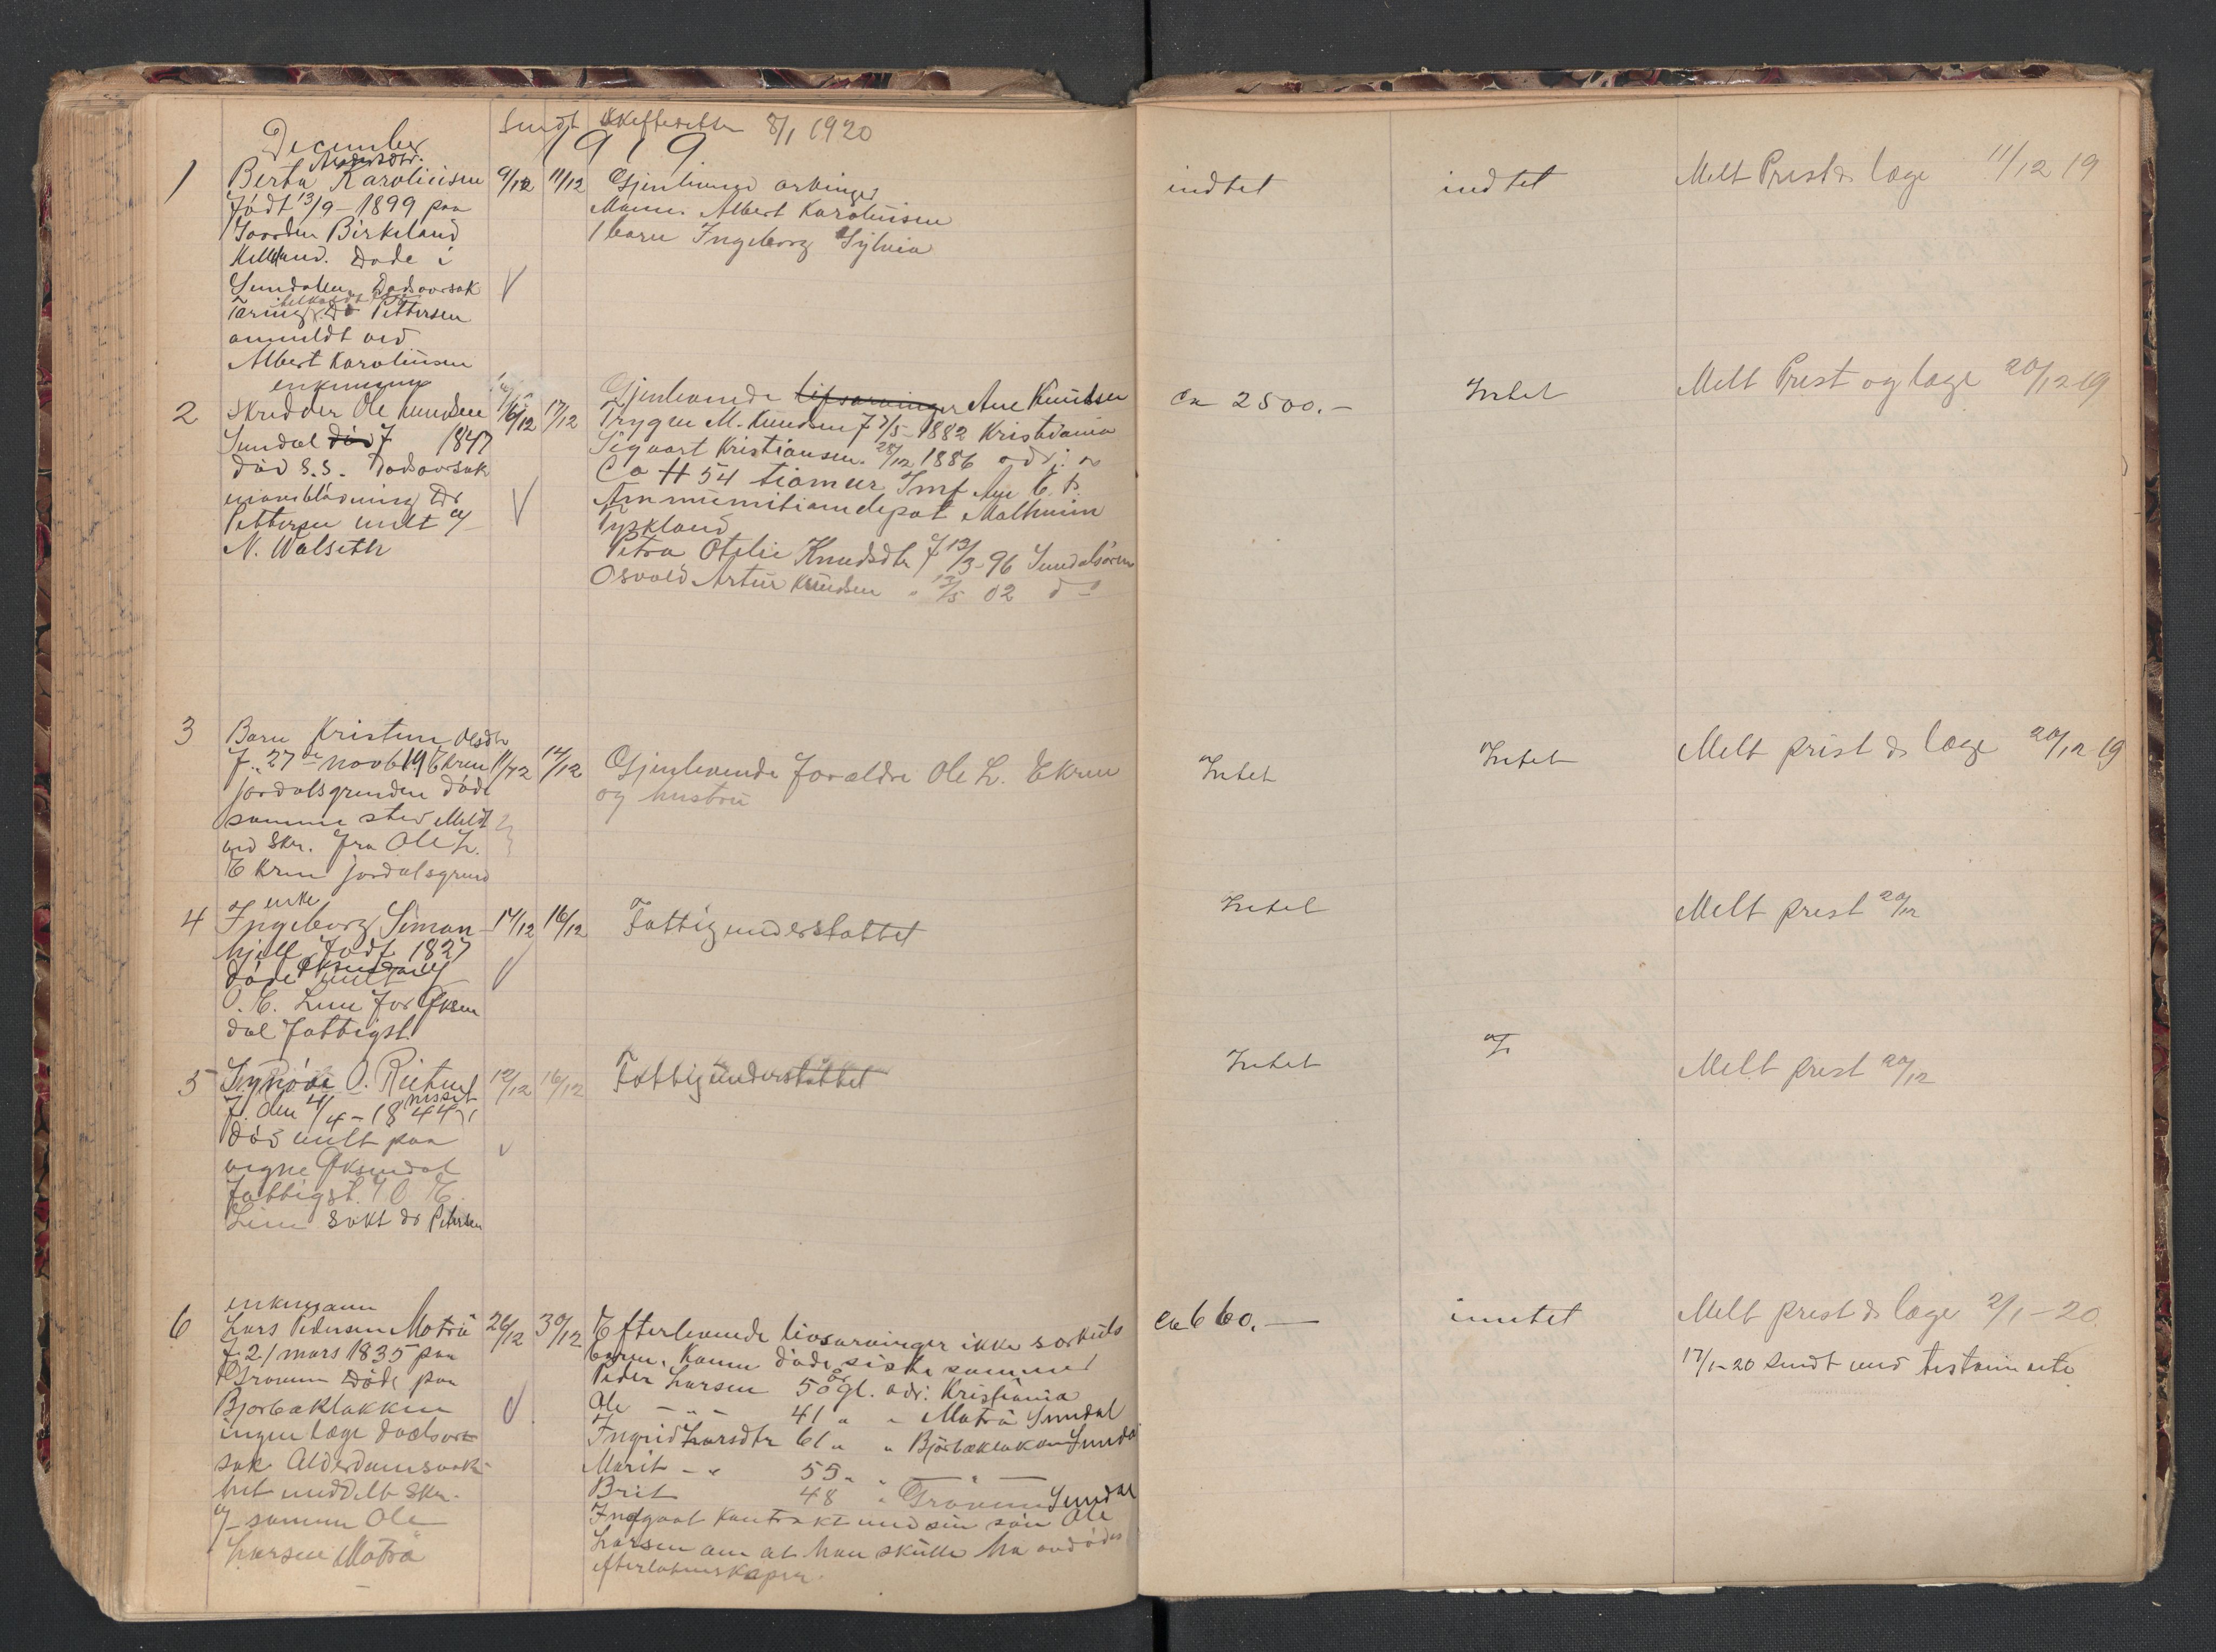 Sendt Skifteretten 8/1 1920
December 1919
1
Andersdtr.
Berta Karolinsen
født 13/9 - 1899 paa
Gaarden Birkeland
Død i
Sundalen Dødsaarsak
Tæring tilkaldt Dr Pettersen
anmeldt ved
Albert Karolinsen
9/12
11/12
Gjenlevende arvinger
Mann. Albert Karolinsen
1 barn Ingeborg Sylvia
indtet
indtet
Melt Prest & læge 11/12 19
enkemann
2
Skredder Ole Knudsen
Sundal død f 1847
død S.S. Dødsaarsak
Dr
Pettersen melt af
N. Walseth
16/12
17/12
Gjenlevende livsarvinger Ane Knudsen
Trygve M. Knudsen f 7/5 - 1882 Kristiania
Sigvart Kristiansen. 28/12 1886 adr:
Co H 54 Inf
Ammunitiamdepot
Tyskland
Petra Otelie Knudsdtr f 12/3 - 96 Sundalsøren
Osvald Artur Knudsen " 12/5 02 do
ca 2500.-
Intet
Melt Prest og læge 20/12 19
3
Barn Kristine Olsdtr
f. 27de novb 19 Ekren
jordalsgrenden døde
samme sted Meldt
ved Skr. fra Ole L.
Ekren jordalsgrend
11/12
14/12
Gjenlevende forældre Ole L. Ekren
og hustru
Intet
Intet
Melt prist & læge 20/12 19
enke
4
Ingeborg Siman
hjell født 1827
døde Øksendal melt af
O. E. Lime for Øksen
dal fattigst.
14/12
16/12
Fattigunderstøttet
Intet
Melt prest 20/12
5
O.
nisset
f. den 4/4 - 1844
død melt paa
vegne Øksendal
fattigst. O E.
Lime søkt dr Petersen
12/12
16/12
Fattigunderstøttet
Intet
Melt prest 20/12
enkemann
6
Lars Pedersen Motrø
f. 21 mars 1835 paa
Grøvum Døde paa
Bjørbækløkken
ingen læge dødsaar
sak Alderdomsvak
het meddelt Skr.
af sønnen Ole
Larsen Motrø
26/12
30/12
Efterlevende livsarvinger ikke særkuls
barn. Konen døde siste sommer
Peder Larsen 50 år gl. adr: Kristiania
Ole - " - 41 " " Motrø Sundal
Ingrid Larsdtr 61 " " Bjørbækløkken Sundal
Marit - " 55 " - " -
Brit 48 " Grøvum Sundal
Indgaat kontrakt med sin søn Ole
Larsen om at han skulle ha avdødes
efterlatenskaper.
ca 660.-
inntet
Melt prest & læge 2/1 - 20
17/1 - 20 sendt med testamente